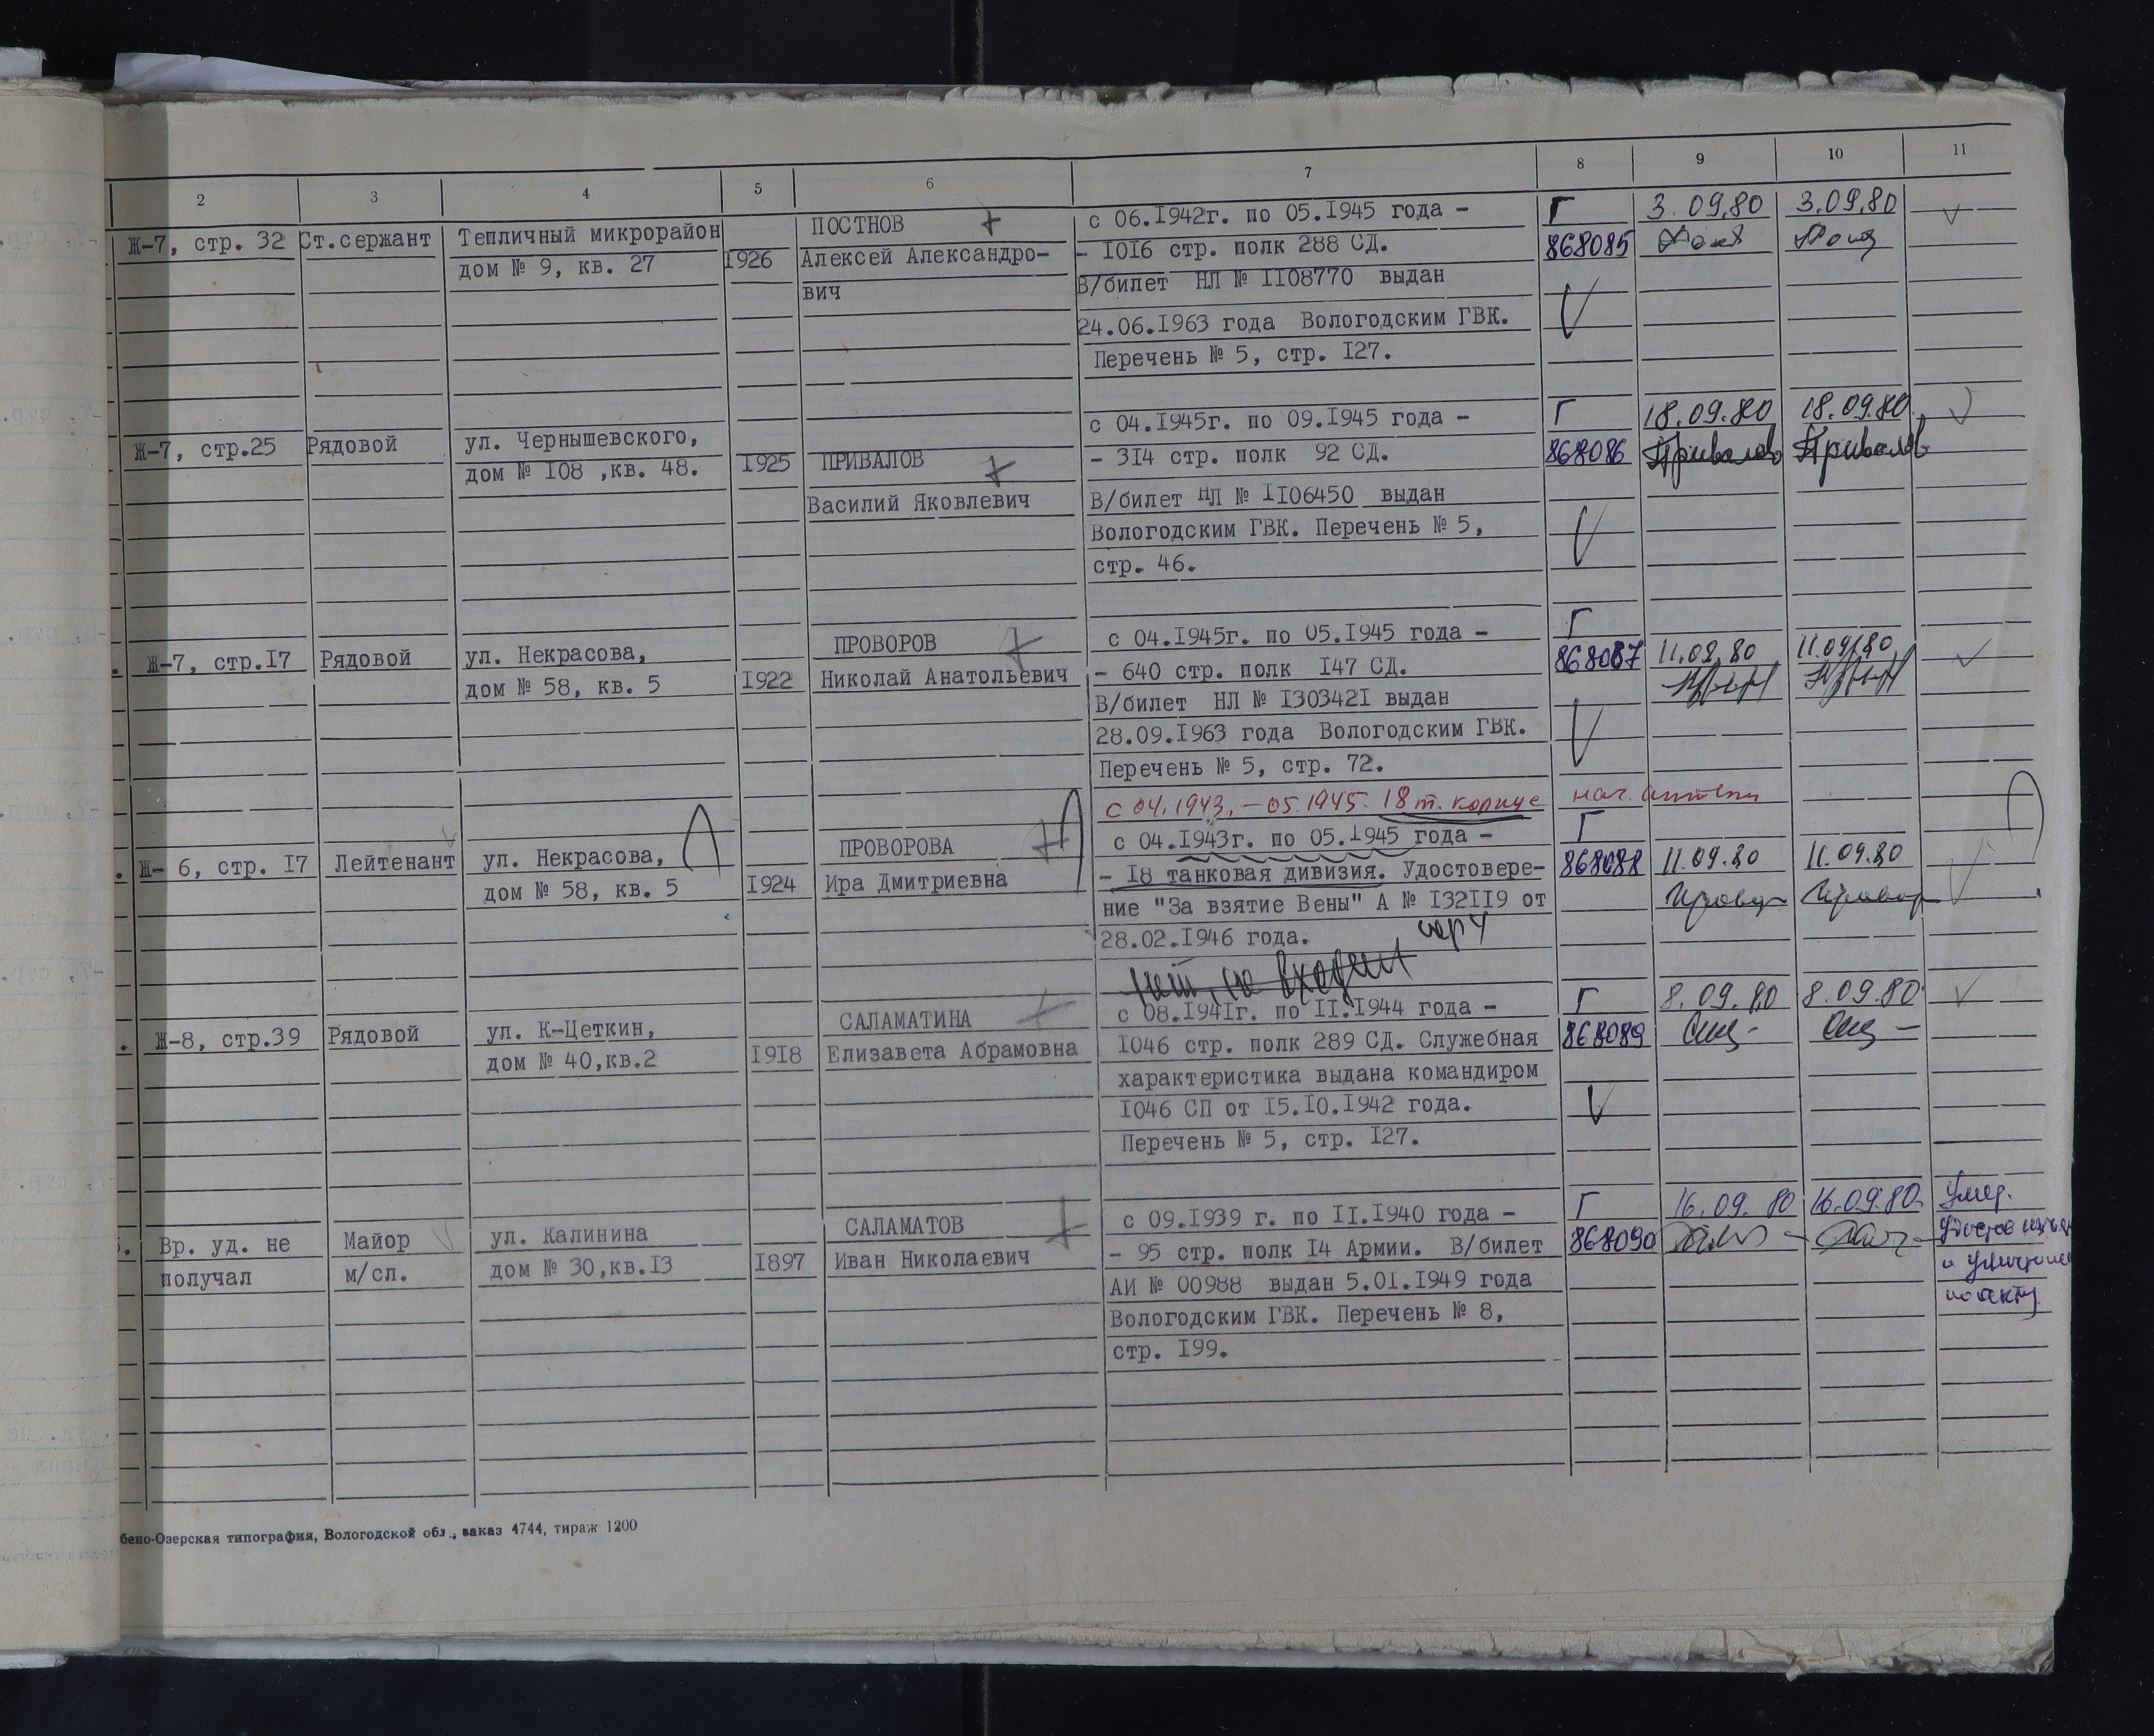 2 3 4 5 6 7 8 9 10 11
Ж-7, стр. 32 Ст.сержант Тепличный микрорайон
дом № 9, кв. 27
1926
ПОСТНОВ
Алексей Александро-
вич
с 06.1942г. по 05.1945 года -
- 1016 стр. полк 288 СД.
В/билет НЛ № 1108770 выдан
24.06.1963 года Вологодским ГВК.
Перечень № 5, стр. 127.
Г
868085
3.09.80 3.09.80
Ж-7, стр.25 Рядовой ул. Чернышевского,
дом № 108 ,кв. 48.
1925
ПРИВАЛОВ
Василий Яковлевич
с 04.1945г. по 09.1945 года -
- 314 стр. полк 92 СД.
В/билет НЛ № 1106450 выдан
Вологодским ГВК. Перечень № 5,
стр. 46.
Г
868086
18.09.80 18.09.80
Привалов Привалов
. Ж-7, стр.17 Рядовой ул. Некрасова,
дом № 58, кв. 5
1922
ПРОВОРОВ
Николай Анатольевич
с 04.1945г. по 05.1945 года -
- 640 стр. полк 147 СД.
В/билет НЛ № 1303421 выдан
28.09.1963 года Вологодским ГВК.
Перечень № 5, стр. 72.
Г
868087
11.09.80 11.09.80
с 04.1943, - 05.1945. 18 т. корпусе
. Ж- 6, стр. 17 Лейтенант ул. Некрасова,
дом № 58, кв. 5
1924
ПРОВОРОВА
Ира Дмитриевна
с 04.1943г. по 05.1945 года -
- 18 танковая дивизия. Удостовере-
ние "За взятие Вены" А № 132119 от
28.02.1946 года.
нет, не входит
Г
868088
11.09.80 11.09.80
. Ж-8, стр.39 Рядовой ул. К-Цеткин,
дом № 40,кв.2
1918
САЛАМАТИНА
Елизавета Абрамовна
с 08.1941г. по 11.1944 года -
1046 стр. полк 289 СД. Служебная
характеристика выдана командиром
1046 СП от 15.10.1942 года.
Перечень № 5, стр. 127.
Г
868089
8.09.80 8.09.80
. Вр. уд. не
получал
Майор
м/сл.
ул. Калинина
дом № 30,кв.13
1897
САЛАМАТОВ
Иван Николаевич
с 09.1939 г. по 11.1940 года -
- 95 стр. полк 14 Армии. В/билет
АИ № 00988 выдан 5.01.1949 года
Вологодским ГВК. Перечень № 8,
стр. 199.
Г
868090
16.09.80 16.09.80.
Умер.
по акту
бено-Озерская типография, Вологодской обл., заказ 4744, тираж 1200